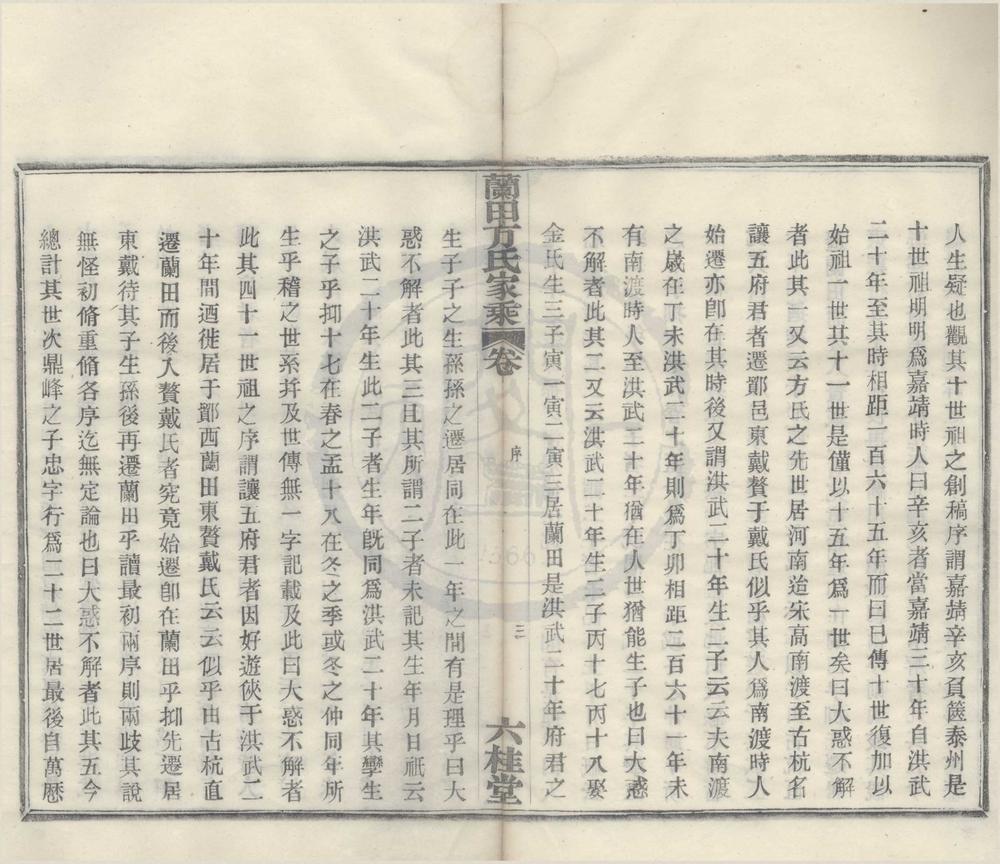 人生疑也觀其十世祖之創稿序謂嘉靖辛亥負篋泰州是
十世祖明明爲嘉靖時人曰辛亥者當嘉靖三十年自洪武
二十年至其時相距一百六十五年而曰已傳十世復加以
始祖一世其十一世是僅以十五年爲一世矣曰大惑不解
者此其一又云方氏之先世居河南迨宋高南渡至古杭名
讓五府君者遷鄞邑東戴贅于戴氏似乎其人爲南渡時人
始遷亦卽在其時後又謂洪武二十年生二子云云夫南渡
之歲在丁未洪武二十年則爲丁卯相距二百六十一年未
有南渡時人至洪武二十年猶在人世猶能生子也曰大惑
不解者此其二又云洪武二十年生二子丙十七丙十八娶
金氏生三子寅一寅二寅三居蘭田是洪武二十年府君之
蘭田方氏家乘 卷 序 三 六桂堂
生子子之生孫孫之遷居同在此一年之間有是理乎曰大
惑不解者此其三且其所謂二子者未記其生年月日祇云
洪武二十年生此二子者生年旣同爲洪武二十年其孿生
之子乎抑十七在春之孟十八在冬之季或冬之仲同年所
生乎稽之世系幷及世傳無一字記載及此曰大惑不解者
此其四十一世祖之序謂讓五府君者因好遊俠于洪武二
十年間迺徙居于鄞西蘭田東贅戴氏云云似乎由古杭直
遷蘭田而後入贅戴氏者究竟始遷卽在蘭田乎抑先遷居
東戴待其子生孫後再遷蘭田乎讀最初兩序則兩歧其說
無怪初脩重脩各序迄無定論也曰大惑不解者此其五今
總計其世次鼎峰之子忠字行爲二十二世居最後自萬厯